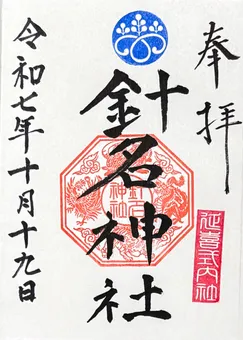 奉拝
延喜式内社
針名神社
令和七年十月十九日